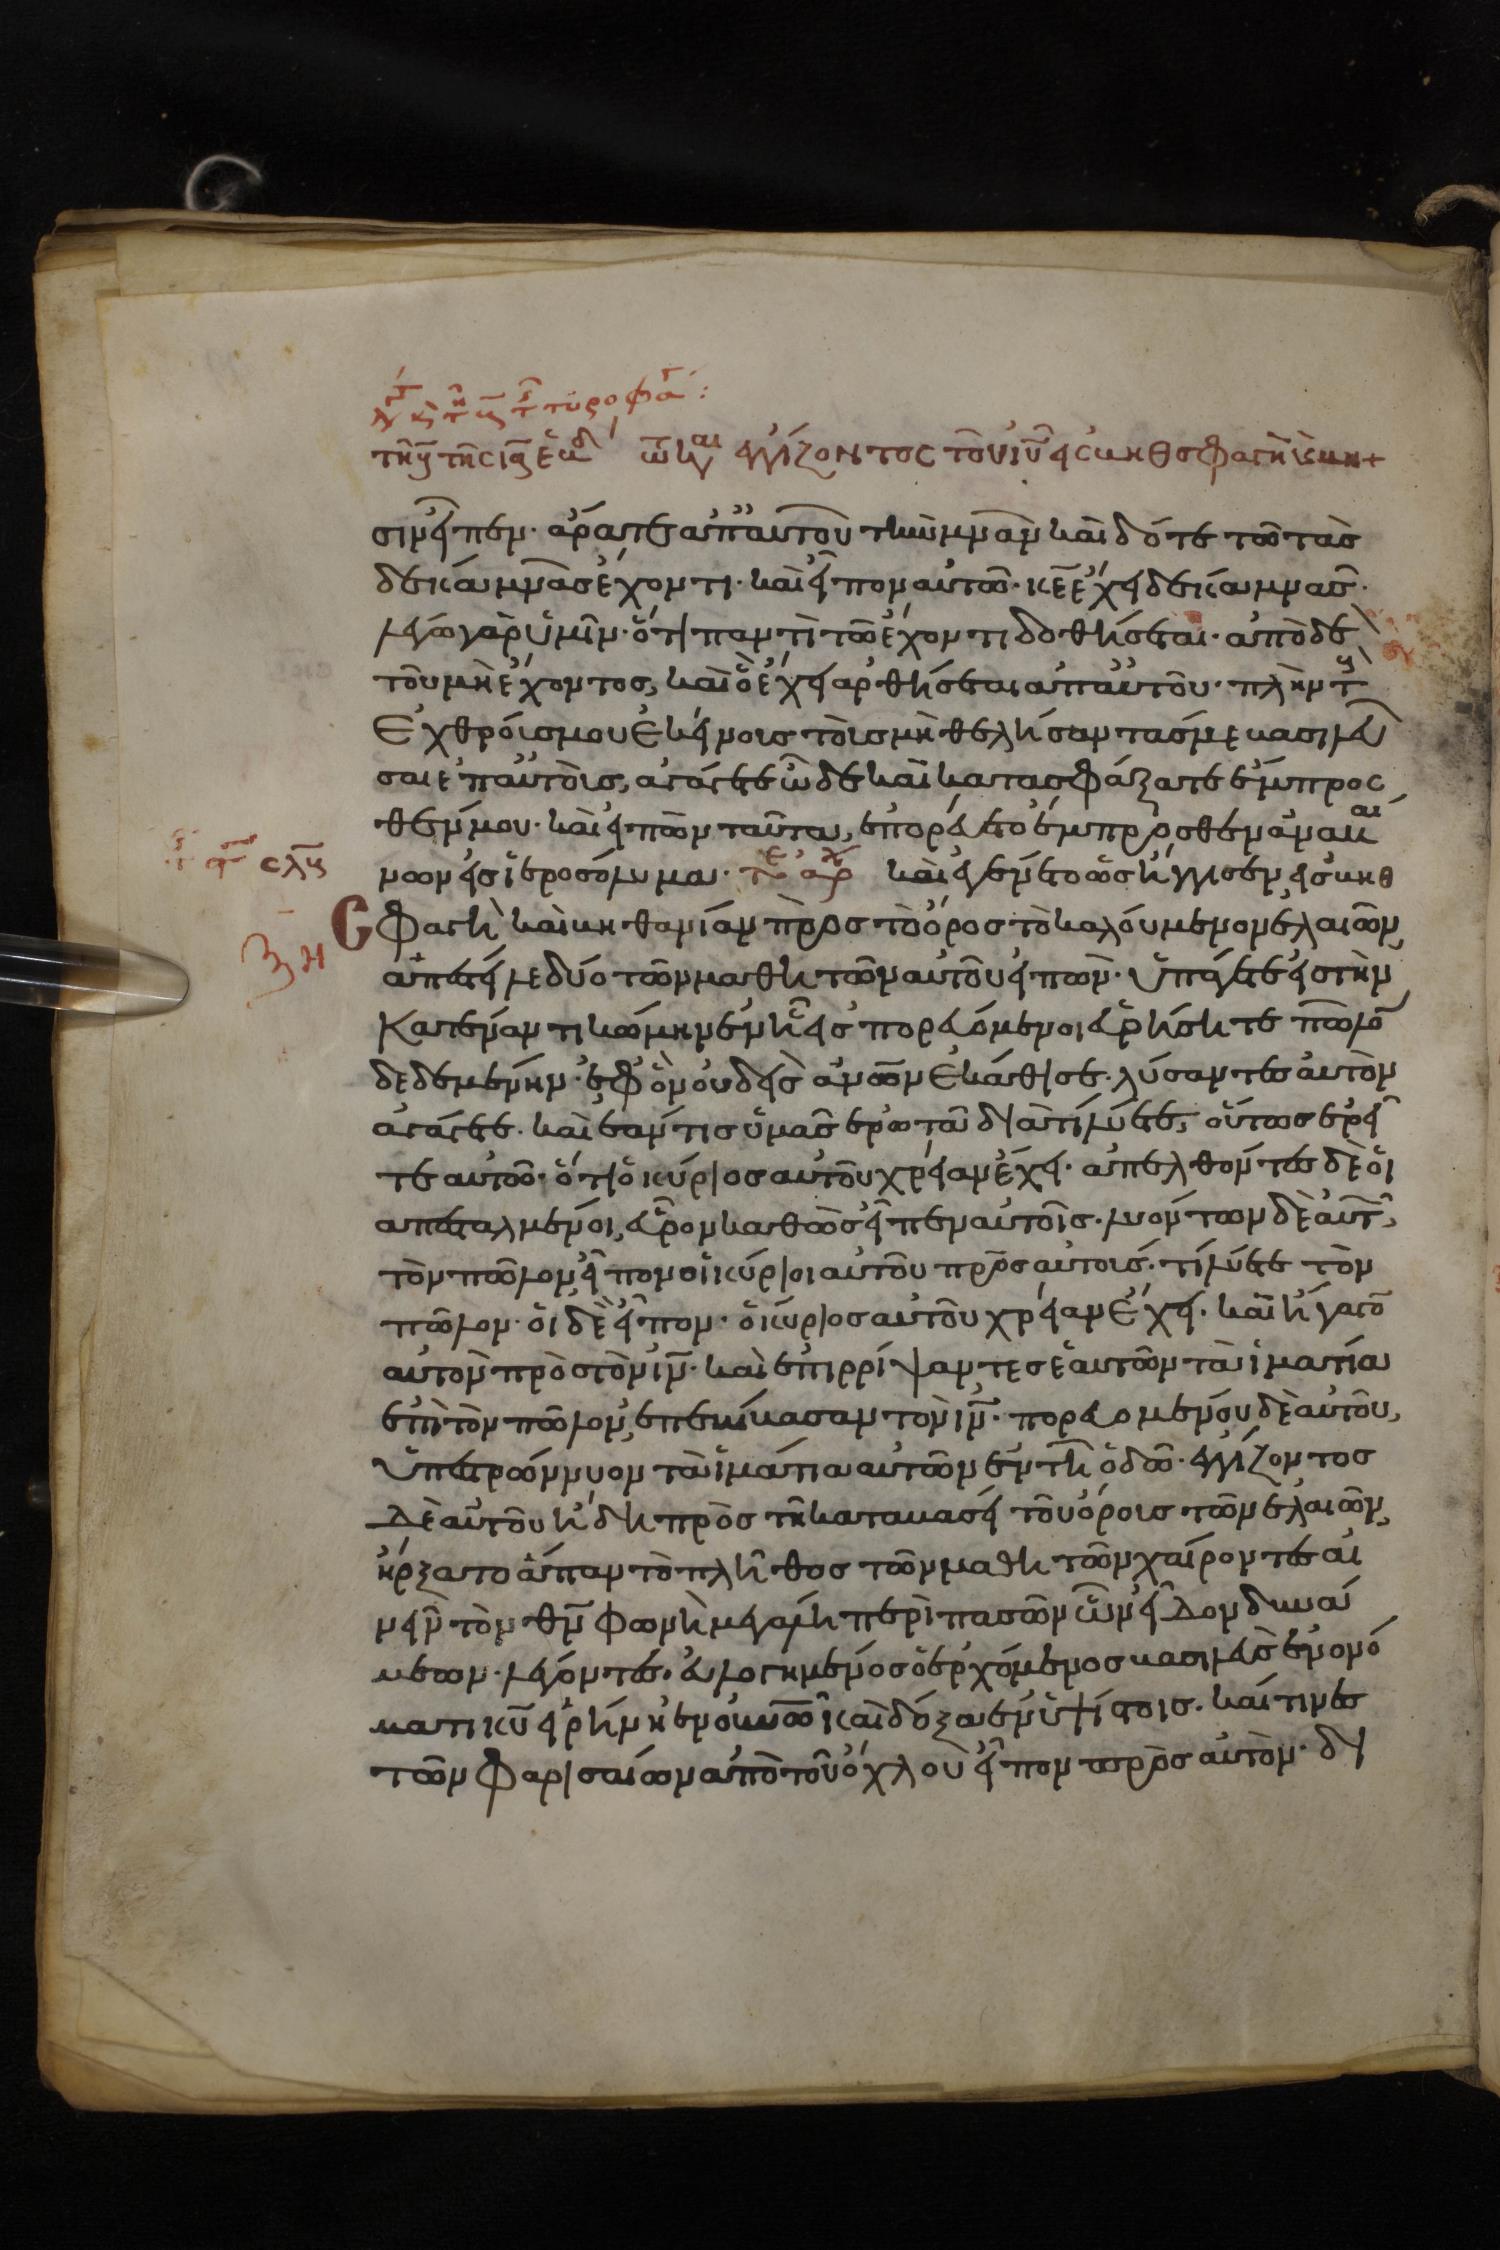 τῆς τυροφά:
τῷ καιρῷ ἐγγίζοντος τοῦ ιυ εἰς βηθσφαγὴ καὶ βη
σιν εἶπεν· ἄρατε ἀπ' αὐτοῦ τὴν μνᾶν καὶ δότε τῶ τὰς
δέκα μνᾶς ἔχοντι· καὶ εἶπον αὐτῶ· κε ἔχει δέκα μνᾶς·
λέγω γὰρ ὑμῖν· ὅτι παντὶ τῶ ἔχοντι δοθήσεται· ἀπὸ δὲ
τοῦ μὴ ἔχοντος, καὶ ὃ ἔχει ἀρθήσεται ἀπ' αὐτοῦ· πλὴν τοὺς
ἐχθρούς μου ἐκείνους τοὺς μὴ θελήσαντάς με βασιλεῦ
σαι ἐπ' αὐτοὺς, ἀγάγετε ὧδε καὶ κατασφάξατε ἔμπροσ
θέν μου· καὶ εἰπὼν ταῦτα, ἐπορεύετο ἔμπροσθεν ἀναβαί
νων εἰς ἱεροσόλυμα· τέλος ἀρχ καὶ ἐγένετο ὡς ἤγγισεν εἰς βηθ
σφαγὴ καὶ βηθανίαν πρὸς τὸ ὄρος τὸ καλούμενον ἐλαιῶν,
ἀπέστειλε δύο τῶν μαθητῶν αὐτοῦ εἰπών· ὑπάγετε εἰς τὴν
κατέναντι κώμην ἐν ἧ εἰσπορευόμενοι εὑρήσητε πῶλον
δεδεμένην· ἐφ' ὃν οὐδεὶς ἀνων ἐκάθισε· λύσαντες αὐτὸν
ἀγάγετε· καὶ ἐάν τις ὑμᾶς ἐρωτᾶ διατί λύετε, οὕτως ἐρεῖ
τε αὐτῶ· ὅτι ὁ κύριος αὐτοῦ χρείαν ἔχει· ἀπελθόντες δὲ οἱ
ἀπεσταλμένοι, εὗρον καθὼς εἶπεν αὐτοῖς· λυόντων δὲ αὐτῶν
τὸν πῶλον εἶπον οἱ κύριοι αὐτοῦ πρὸς αὐτούς· τί λύετε τὸν
πῶλον· οἱ δὲ εἶπον· ὁ κύριος αὐτοῦ χρείαν ἔχει· καὶ ἤγαγον
αὐτὸν πρὸς τὸν ιν· καὶ ἐπιρρίψαντες ἑαυτῶν τὰ ἱμάτια
ἐπὶ τὸν πῶλον, ἐπεβίβασαν τὸν ιν· πορευομένου δὲ αὐτοῦ,
ὑπεστρώννυον τὰ ἱμάτια αὐτῶν ἐν τῆ ὁδῶ· ἐγγίζοντος
δὲ αὐτοῦ ἤδη πρὸς τῆ καταβάσει τοῦ ὄρους τῶν ἐλαιῶν,
ἤρξατο ἅπαν τὸ πλῆθος τῶν μαθητῶν χαίροντες αἰ
νεῖν τὸν θν φωνῆ μεγάλη περὶ πασῶν ὧν εἶδον δυνά
μεων· λέγοντες· εὐλογημένος ὁ ἐρχόμενος βασιλεὺς ἐν ὀνό
ματι κυ εἰρήνη ἐν οὐνῶ καὶ δόξα ἐν ὑψίστοις· καί τινες
τῶν φαρισαίων ἀπὸ τοῦ ὄχλου εἶπον πρὸς αὐτὸν· δι